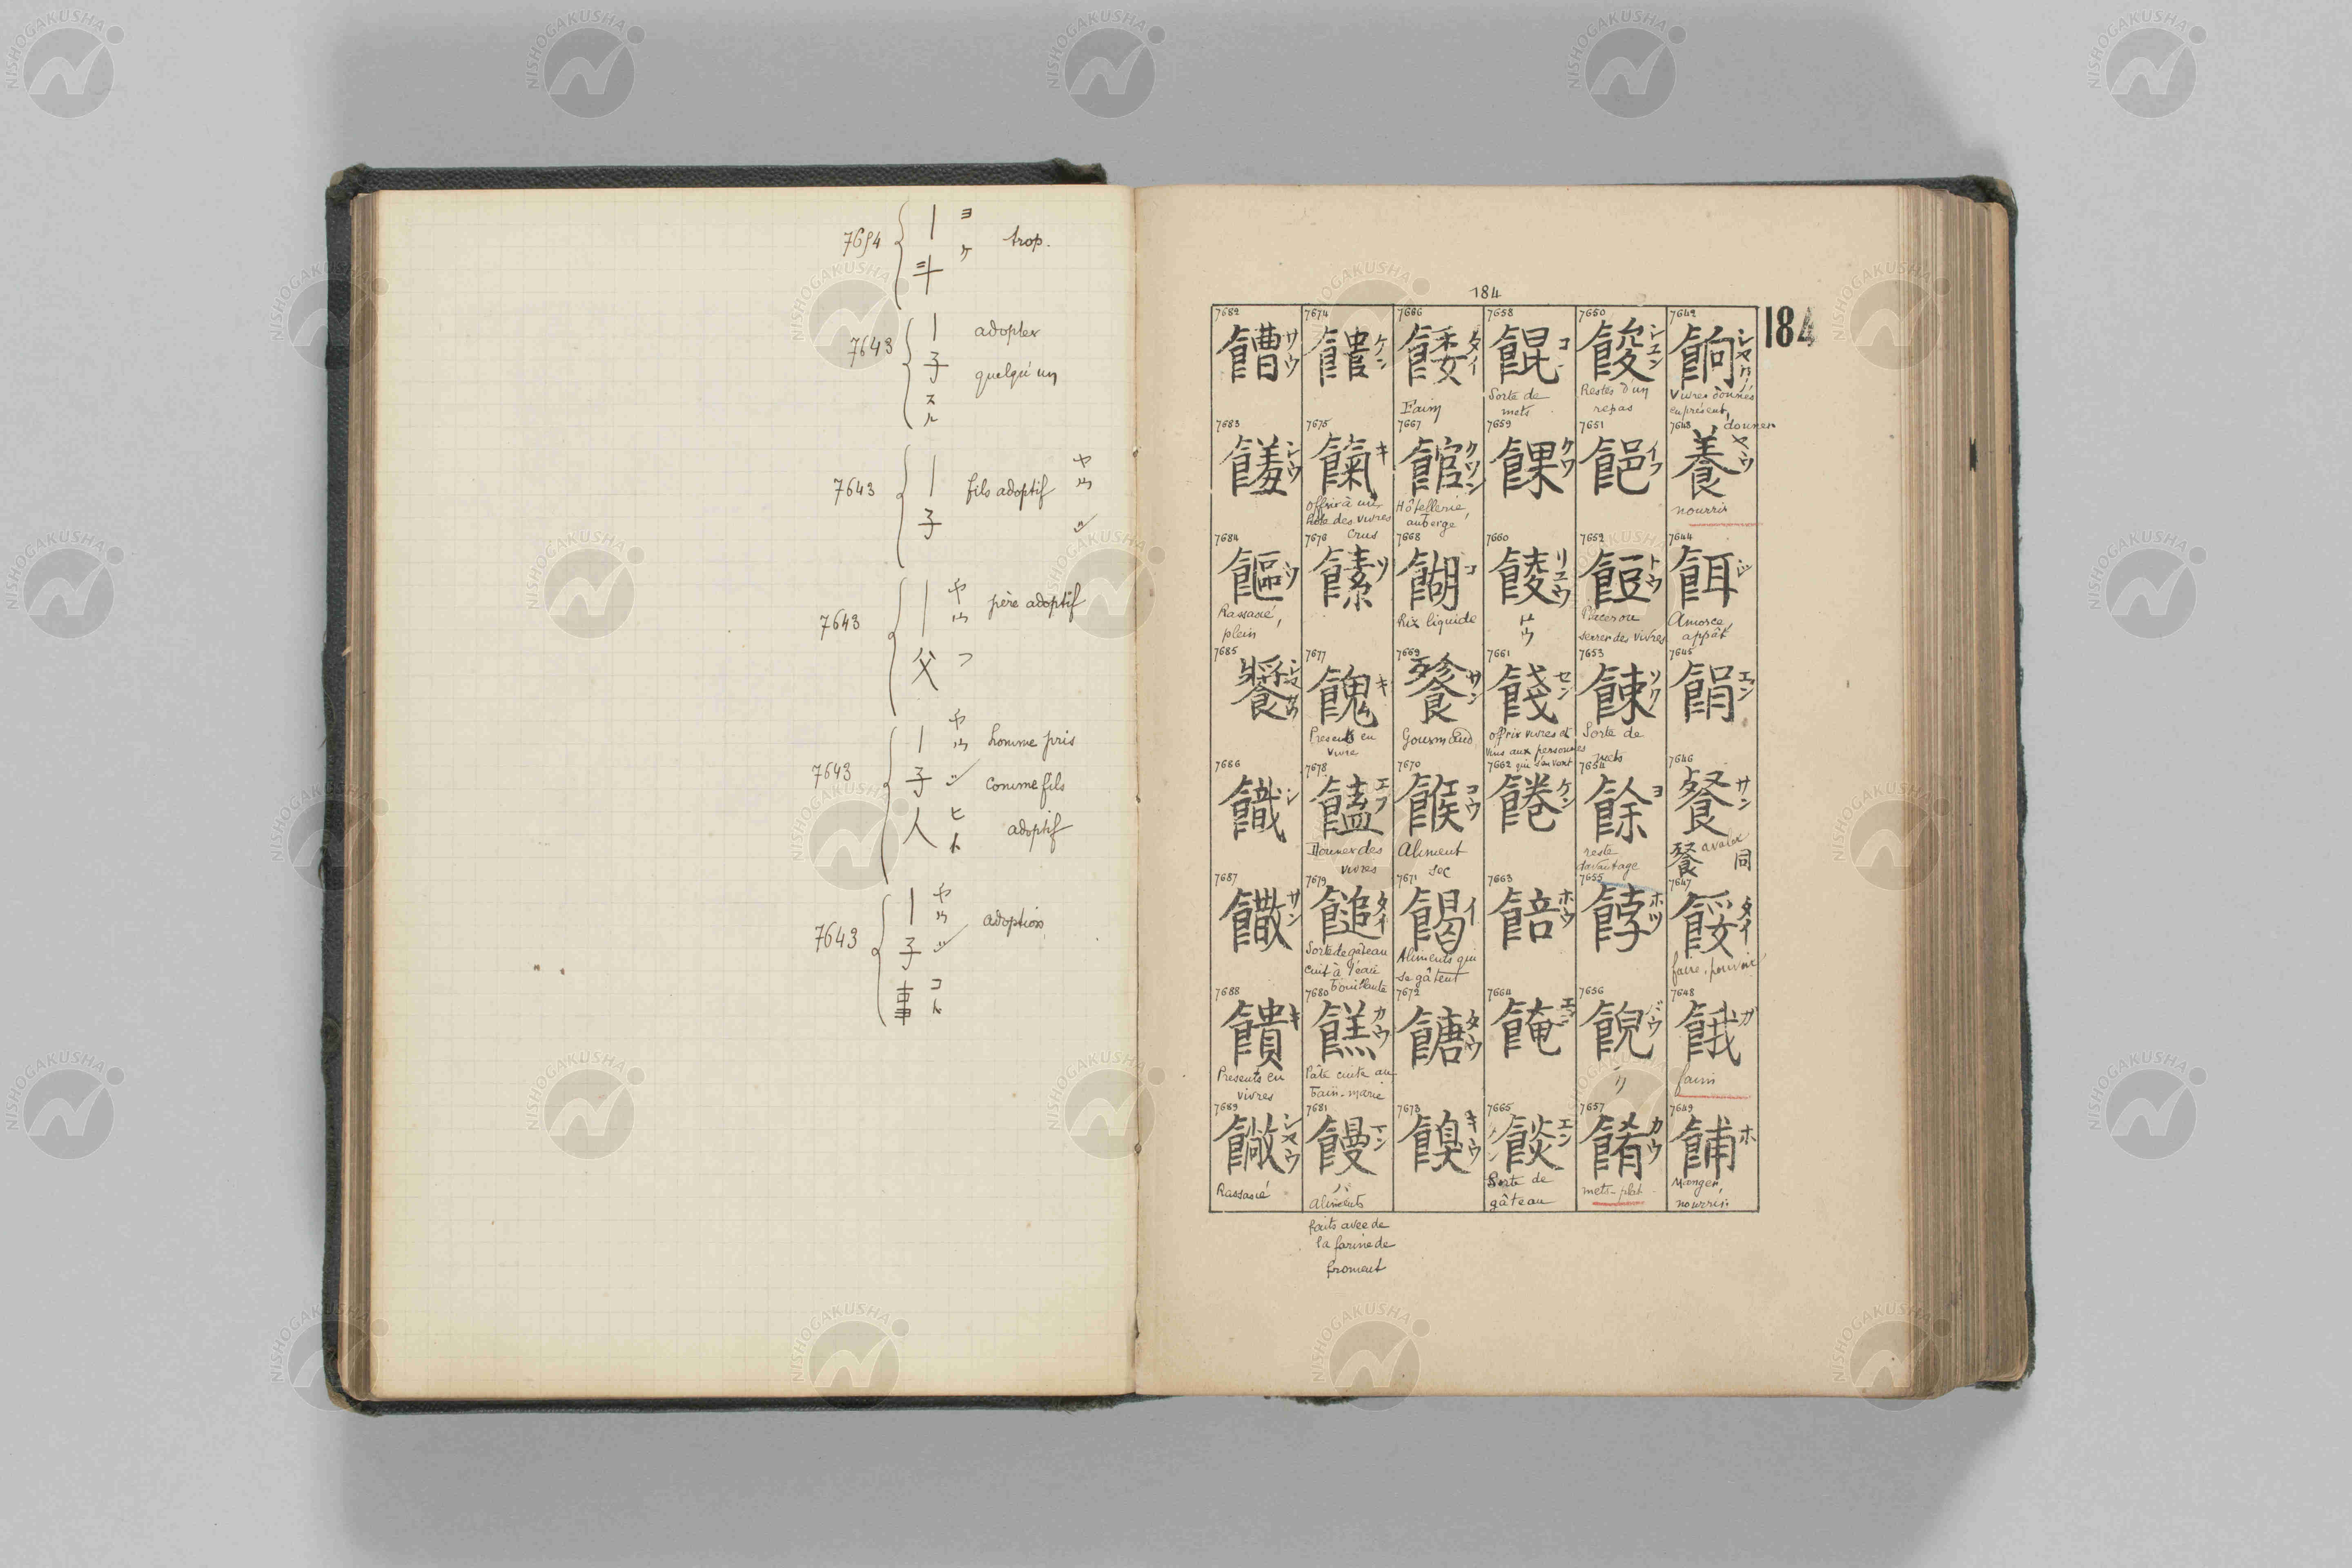 7654 | ヨ trop.
斗 ケ
7643 | adopter
子 quelqu'un
スル
7643 | fils adoptif ヤウ
子 シ
7643 | ヤウ père adoptif
父 フ
7643 | ヤウ homme pris
子 シ comme fils
人 ヒト adoptif
7643 | ヤウ adoption
子 シ
事 コト
184
184
7642 餉 シヤウ
Vivres donnés
en présent,
donner
7643 養 ヤウ
nourrir
7644 餌 ジ
Amorce,
appât
7645 餇 エン
7646 餐 サン
avaler
餐 同
7647 餒 タイ
7648 餓 ガ
faim
7649 餔 ホ
Manger,
nourrir.
7650 餕 シユン
Restes d'un
repas
7651 䭇 イフ
7652 餖 トウ
Placer ou
serrer des vivres
7653 餗 ソク
Sorte de
mets
7654 餘 ヨ
reste
davantage
7655 餑 ホツ
7656 䬽 バウ
7657 餚 カウ
mets-plat
7658 餛 コン
Sorte de
mets
7659 餜 クワ
7660 餧 リヨウ
7661 餞 セン
offrir vivres et
vins aux personnes
qui s'en vont
7662 餋 ケン
7663 餢 ホウ
7664 餣 エン
7665 餤 エン
Sorte de
gâteau
7666 餧 タイ
Faim
7667 館 クワン
Hôtellerie,
auberge
7668 餬 コ
Riz liquide
7669 飱 サン
Gourmand
7670 餱 コウ
Aliment
sec
7671 餲 イ
Aliments qui
se gâtent
7672 餹 タウ
7673 餿 キウ
7674 饣 ケン
7675 餼 キ
offrir à un
hôte des vivres
crus
7676 嗉 ソ
7677 餽 キ
Presents en
vivre
7678 饁 エフ
Donner des
vivres
7679 鎚 タイ
Sorte de gâteau
cuit à l'eau
bouillante
7680 餻 カウ
Pâte cuite au
bain-marie
7681 饅 マン
Aliments
faits avec de
la farine de
froment
7682 䭚 サウ
7683 饈 シウ
7684 饇 ヲ
Rassasié,
plein
7685
7686 饎 シ
7687 饊 サン
7688 饋 キ
Presents en
vivres
7689 Rassasié